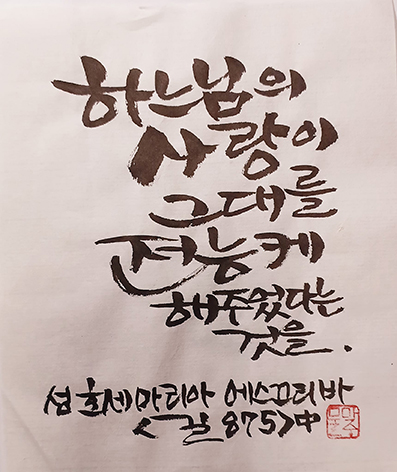 하느님의
사랑이
그대를
전능케
해주었다는
것을.
성 호세마리아 에스끄리바
<길 875>中